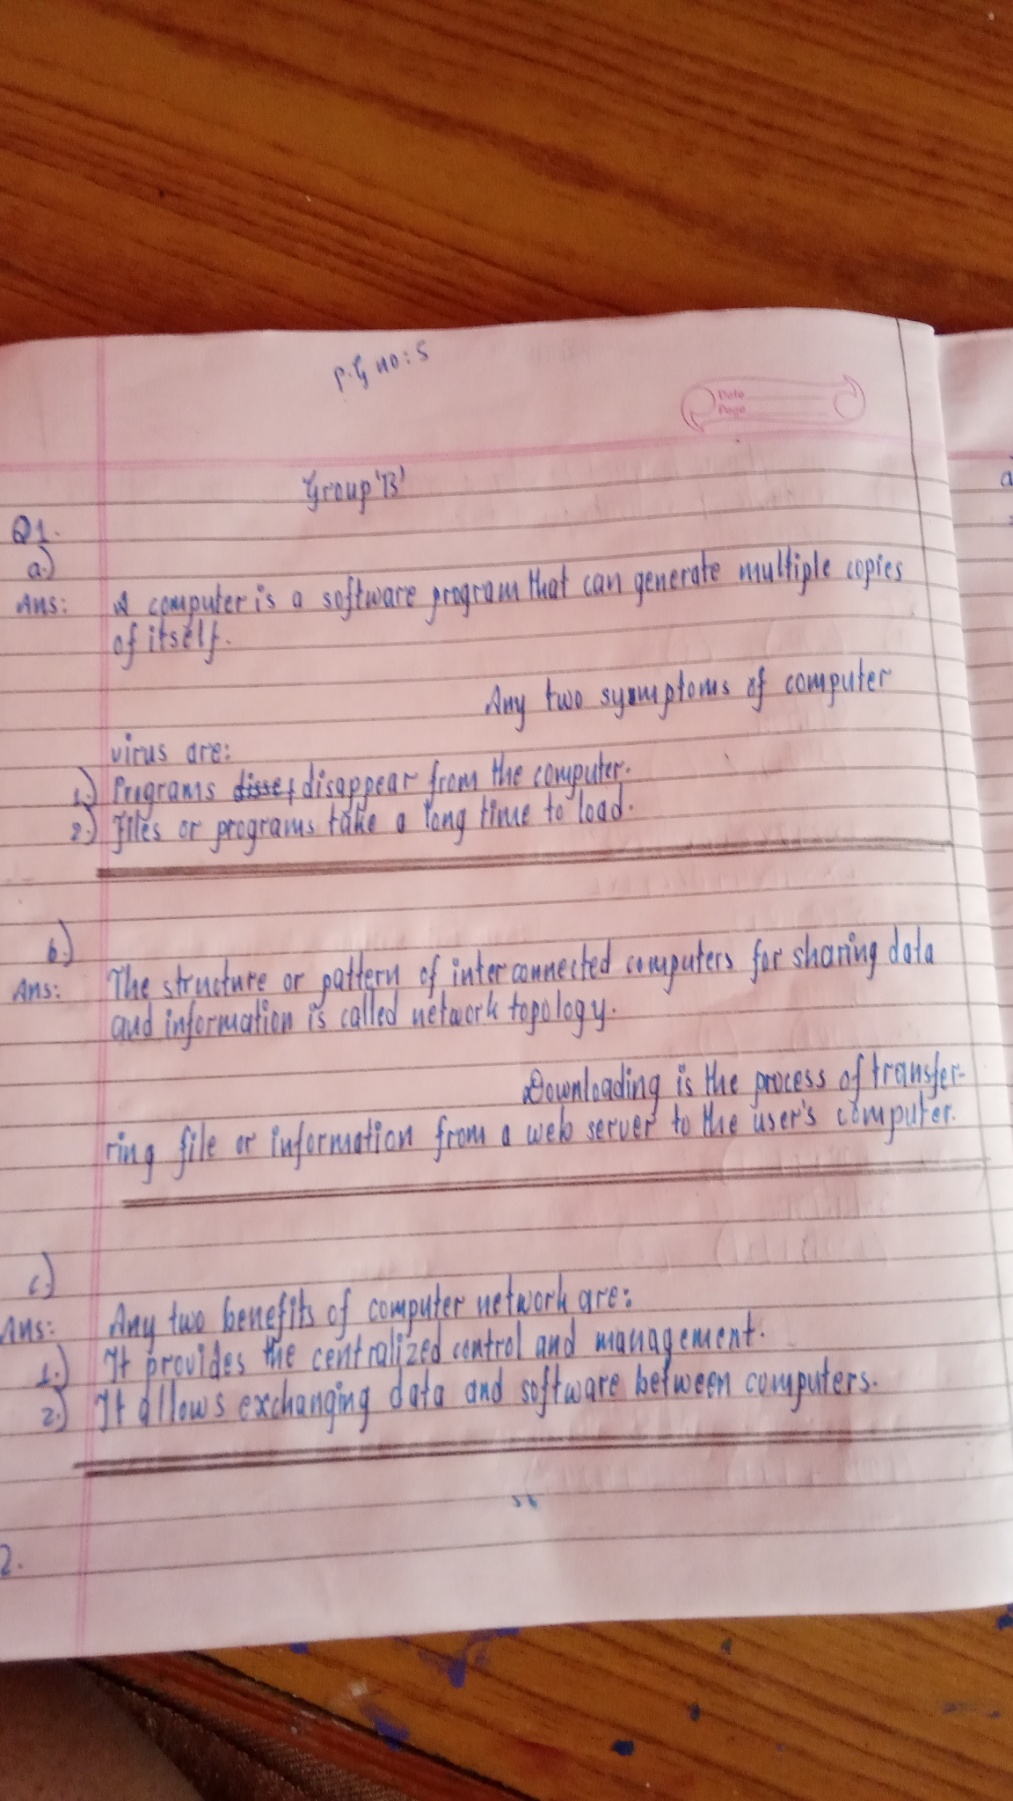 P.G no: 5
Date
Page
Group 'B'
Q1.
a.)
Ans: A computer is a software program that can generate multiple copies
of itself.
Any two symptoms of computer
virus are:
1.) Programs disappear from the computer.
2.) Files or programs take a long time to load.
b.)
Ans: The structure or pattern of interconnected computers for sharing data
and information is called network topology.
Downloading is the process of transfer-
ring file or information from a web server to the user's computer.
c.)
Ans: Any two benefits of computer network are:
1.) It provides the centralized control and management.
2.) It allows exchanging data and software between computers.
2.